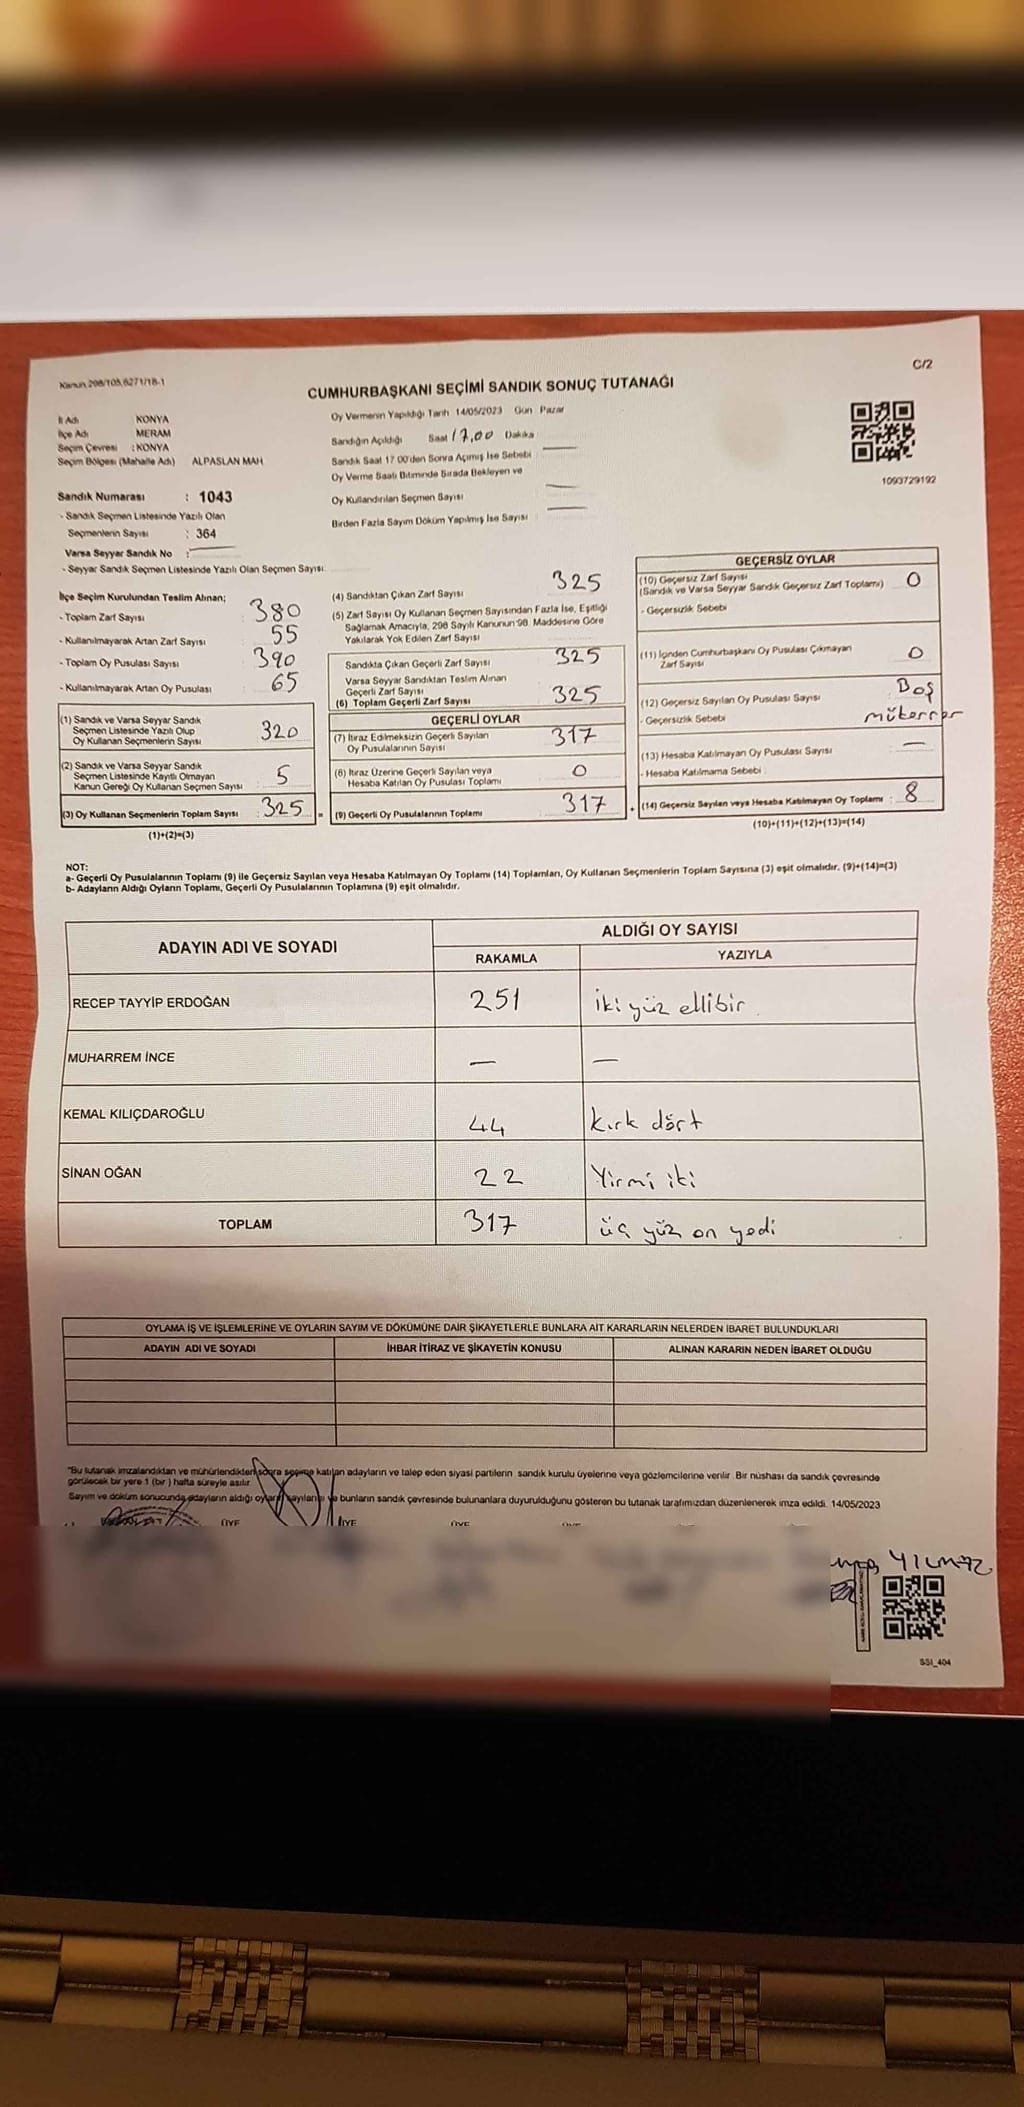 Kanun 298/105,6271/18-1
C/2
CUMHURBAŞKANI SEÇİMİ SANDIK SONUÇ TUTANAĞI
İl Adı KONYA
İlçe Adı MERAM
Seçim Çevresi : KONYA
Seçim Bölgesi (Mahalle Adı) ALPASLAN MAH
Sandık Numarası : 1043
- Sandık Seçmen Listesinde Yazılı Olan
Seçmenlerin Sayısı : 364
Varsa Seyyar Sandık No :
- Seyyar Sandık Seçmen Listesinde Yazılı Olan Seçmen Sayısı:
Oy Vermenin Yapıldığı Tarih 14/05/2023 Gün Pazar
Sandığın Açıldığı Saat 17,00 Dakika
Sandık Saat 17.00'den Sonra Açımış İse Sebebi
Oy Verme Saati Bitiminde Sırada Bekleyen ve
Oy Kullandırılan Seçmen Sayısı
Birden Fazla Sayım Döküm Yapılmış İse Sayısı
1093729192
İlçe Seçim Kurulundan Teslim Alınan;
- Toplam Zarf Sayısı : 380
- Kullanılmayarak Artan Zarf Sayısı : 55
- Toplam Oy Pusulası Sayısı : 390
- Kullanılmayarak Artan Oy Pusulası : 65
(1) Sandık ve Varsa Seyyar Sandık
Seçmen Listesinde Yazılı Olup
Oy Kullanan Seçmenlerin Sayısı : 320
(2) Sandık ve Varsa Seyyar Sandık
Seçmen Listesinde Kayıtlı Olmayan
Kanun Gereği Oy Kullanan Seçmen Sayısı : 5
(3) Oy Kullanan Seçmenlerin Toplam Sayısı : 325 =
(1)+(2)=(3)
(4) Sandıktan Çıkan Zarf Sayısı : 325
(5) Zarf Sayısı Oy Kullanan Seçmen Sayısından Fazla İse, Eşitliği
Sağlamak Amacıyla, 298 Sayılı Kanunun 98. Maddesine Göre
Yakılarak Yok Edilen Zarf Sayısı
Sandıkta Çıkan Geçerli Zarf Sayısı : 325
Varsa Seyyar Sandıktan Teslim Alınan
Geçerli Zarf Sayısı
(6) Toplam Geçerli Zarf Sayısı : 325
GEÇERLİ OYLAR
(7) İtiraz Edilmeksizin Geçerli Sayılan
Oy Pusulalarının Sayısı : 317
(8) İtiraz Üzerine Geçerli Sayılan veya
Hesaba Katılan Oy Pusulası Toplamı : 0
(9) Geçerli Oy Pusulalarının Toplamı : 317 +
GEÇERSİZ OYLAR
(10) Geçersiz Zarf Sayısı
(Sandık ve Varsa Seyyar Sandık Geçersiz Zarf Toplamı) : 0
- Geçersizlik Sebebi
(11) İçinden Cumhurbaşkanı Oy Pusulası Çıkmayan
Zarf Sayısı : 0
(12) Geçersiz Sayılan Oy Pusulası Sayısı : Boş
- Geçersizlik Sebebi mükerrer
(13) Hesaba Katılmayan Oy Pusulası Sayısı : —
- Hesaba Katılmama Sebebi :
(14) Geçersiz Sayılan veya Hesaba Katılmayan Oy Toplamı : 8
(10)+(11)+(12)+(13)=(14)
NOT:
a- Geçerli Oy Pusulalarının Toplamı (9) ile Geçersiz Sayılan veya Hesaba Katılmayan Oy Toplamı (14) Toplamları, Oy Kullanan Seçmenlerin Toplam Sayısına (3) eşit olmalıdır. (9)+(14)=(3)
b- Adayların Aldığı Oyların Toplamı, Geçerli Oy Pusulalarının Toplamına (9) eşit olmalıdır.
ADAYIN ADI VE SOYADI
ALDIĞI OY SAYISI
RAKAMLA YAZIYLA
RECEP TAYYİP ERDOĞAN 251 iki yüz ellibir
MUHARREM İNCE — —
KEMAL KILIÇDAROĞLU 44 kırk dört
SİNAN OĞAN 22 Yirmi iki
TOPLAM 317 üç yüz on yedi
OYLAMA İŞ VE İŞLEMLERİNE VE OYLARIN SAYIM VE DÖKÜMÜNE DAİR ŞİKAYETLERLE BUNLARA AİT KARARLARIN NELERDEN İBARET BULUNDUKLARI
ADAYIN ADI VE SOYADI İHBAR İTİRAZ VE ŞİKAYETİN KONUSU ALINAN KARARIN NEDEN İBARET OLDUĞU
"Bu tutanak imzalandıktan ve mühürlendikten sonra seçime katılan adayların ve talep eden siyasi partilerin sandık kurulu üyelerine veya gözlemcilerine verilir. Bir nüshası da sandık çevresinde
görülecek bir yere 1 (bir) hafta süreyle asılır.
Sayım ve döküm sonucunda adayların aldığı oyların sayılarını ve bunların sandık çevresinde bulunanlara duyurulduğunu gösteren bu tutanak tarafımızdan düzenlenerek imza edildi. 14/05/2023
ÜYE ÜYE ÜYE
YILMAZ
SSI_404